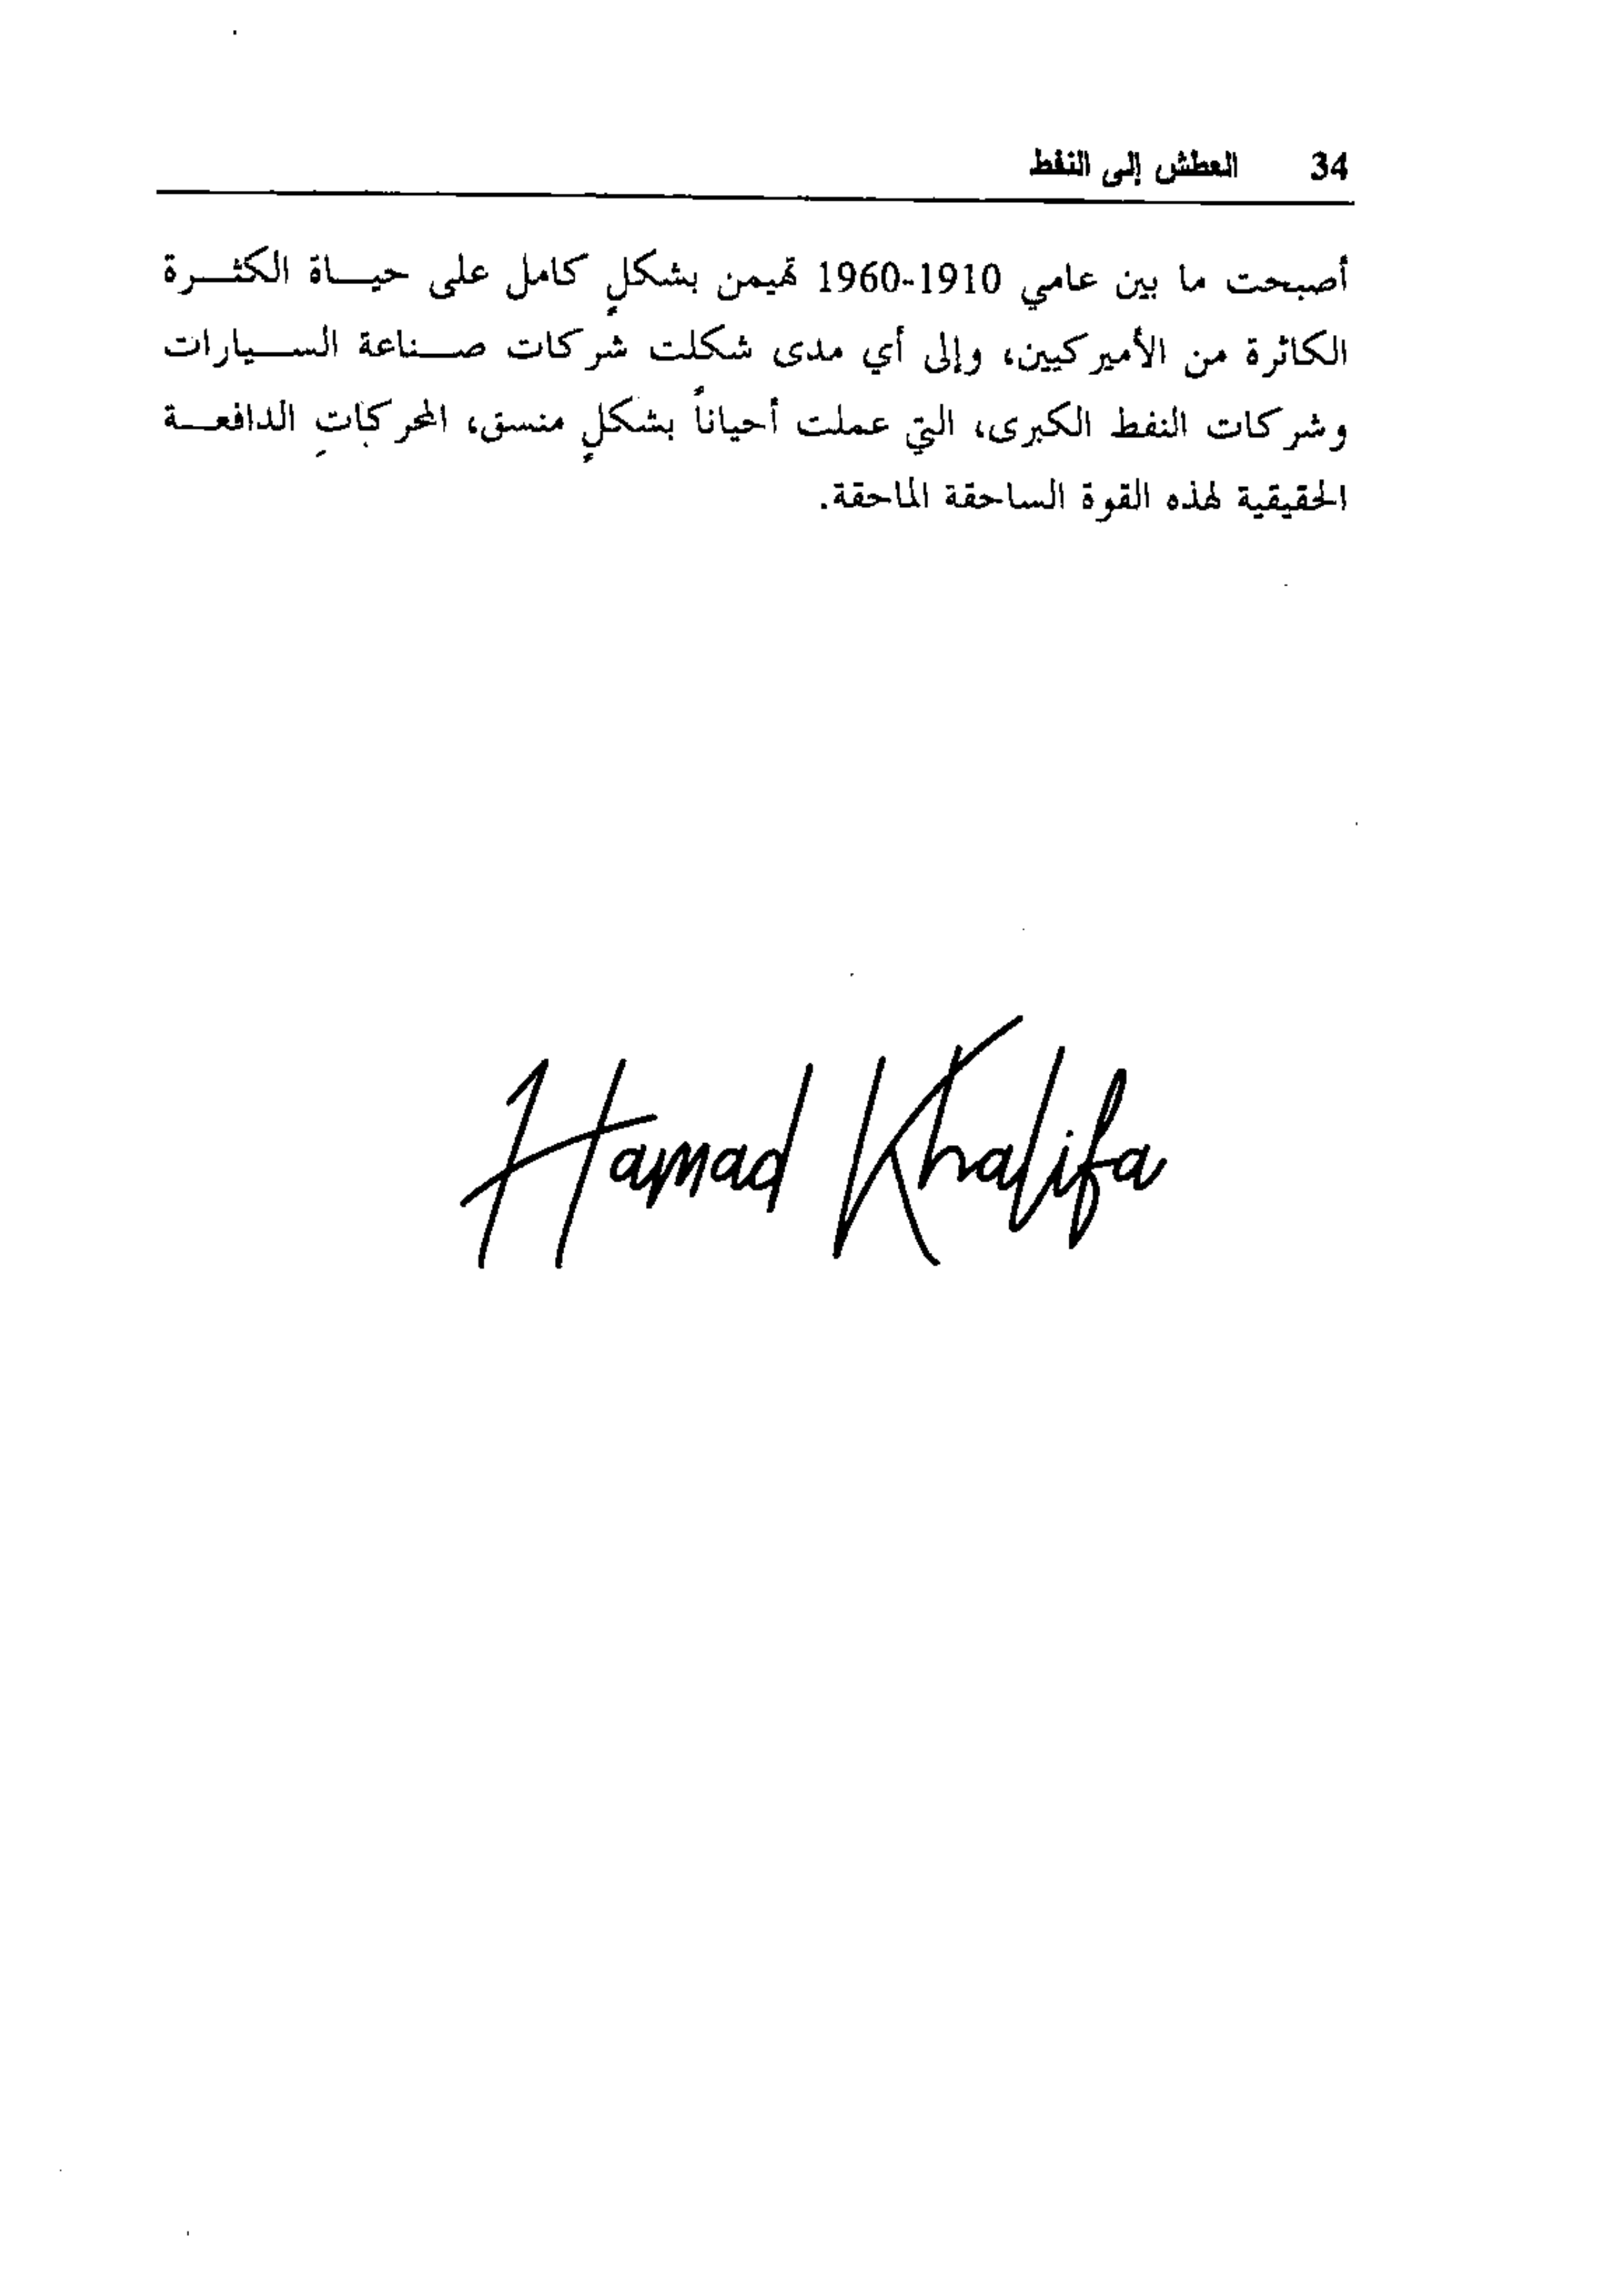 34 العطش إلى النفط
أصبحت ما بين عامي 1910-1960 تهيمن بشكلٍ كامل على حيـاة الكثـرة
الكاثرة من الأميركيين، وإلى أي مدى شكلت شركات صـناعة السـيارات
وشركات النفط الكبرى، التي عملت أحياناً بشكلٍ منسق، المحركاتِ الدافعـة
الحقيقية لهذه القوة الساحقة الماحقة.
Hamad Khalifa